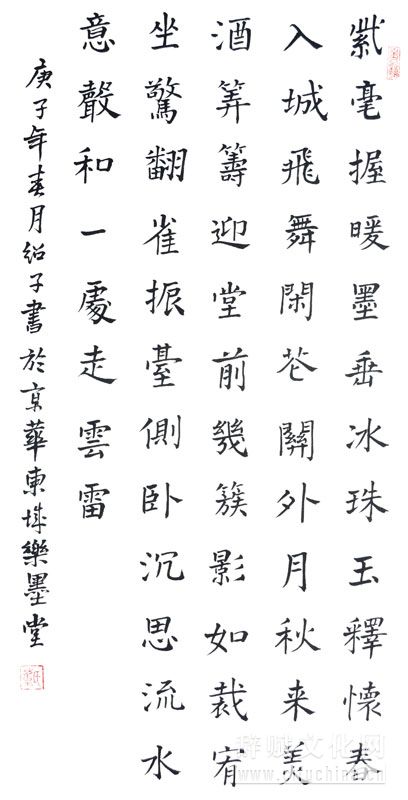 紫毫握暖墨垂冰珠玉釋懷春
入城飛舞閑花關外月秋来美
酒筭籌迎堂前幾簇影如裁宥
坐驚翻雀振臺側卧沉思流水
意聲和一處走雲雷
庚子年春月紹子書於京華東城樂墨堂
辞赋文化网